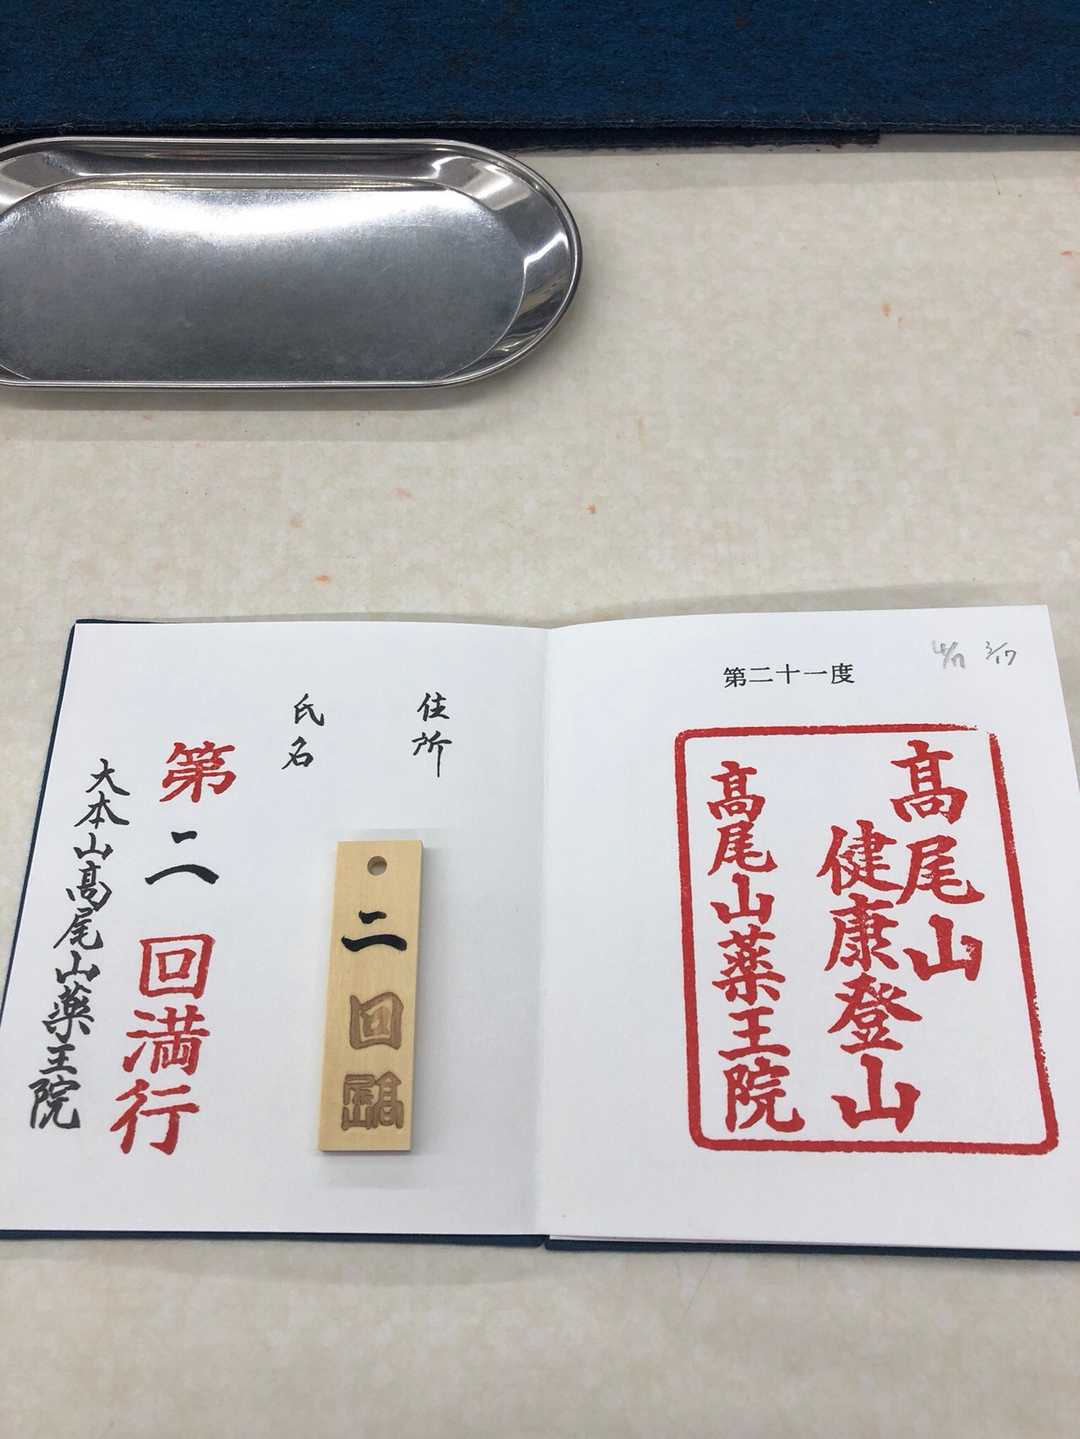 4/17 3/17
第二十一度
髙尾山
健康登山
髙尾山薬王院
住所
氏名
二回
第二回満行
大本山髙尾山薬王院